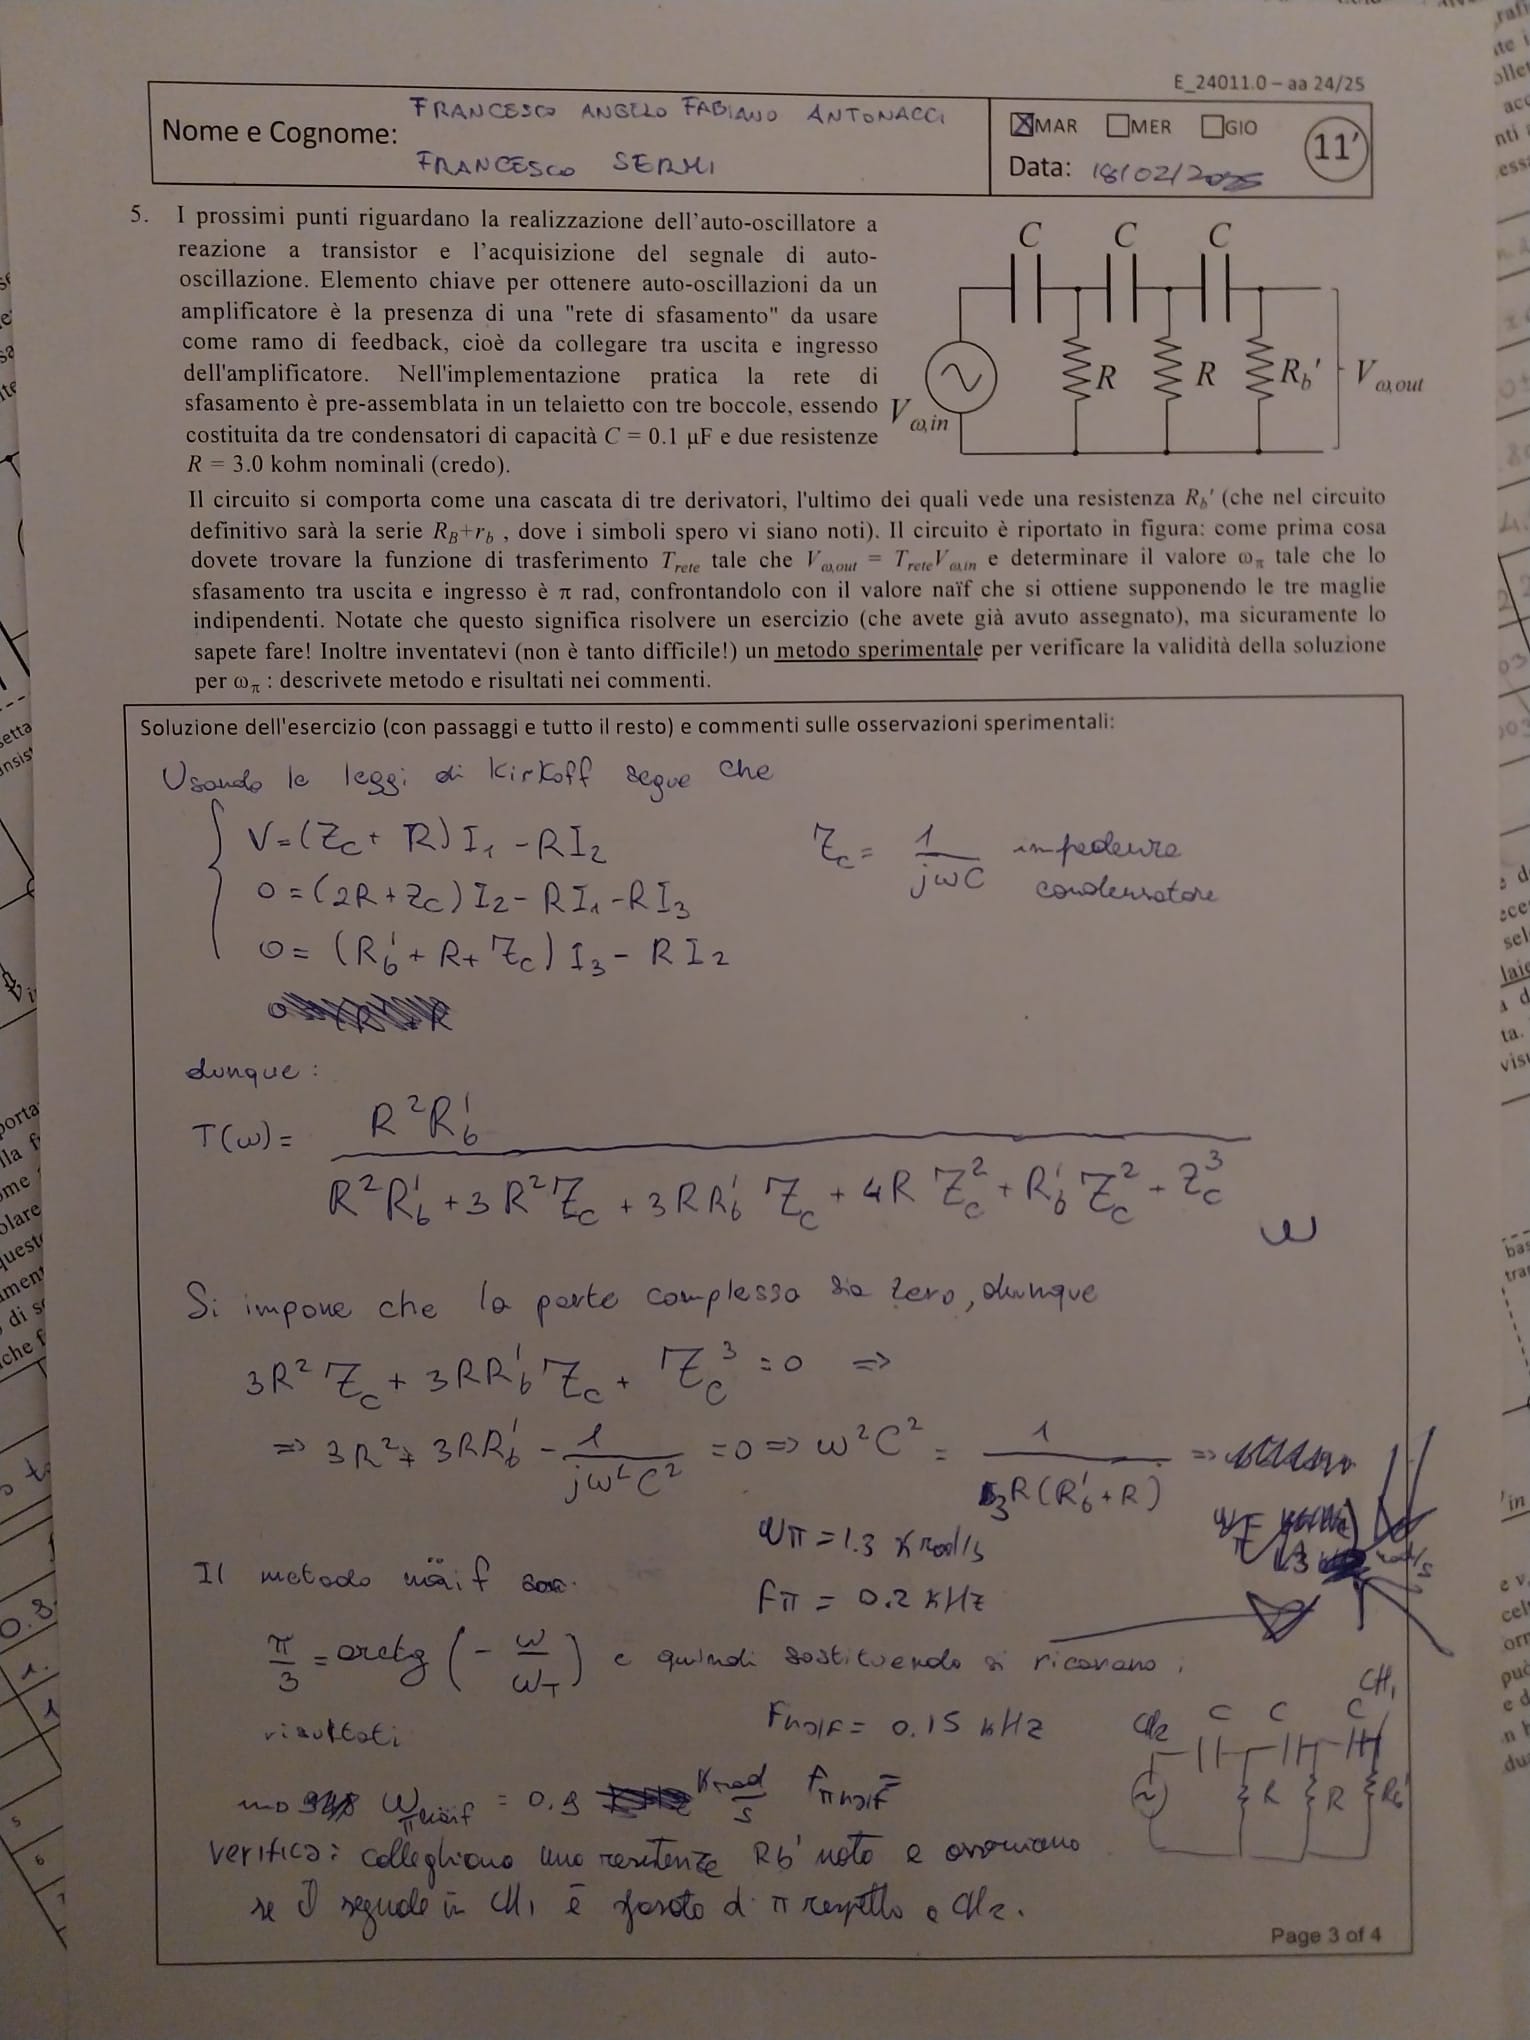 E_24011.0 – aa 24/25
Nome e Cognome: FRANCESCO ANGELO FABIANO ANTONACCI
FRANCESCO SERMI
MAR MER GIO
Data: 18/02/2025
11'
5. I prossimi punti riguardano la realizzazione dell'auto-oscillatore a
reazione a transistor e l'acquisizione del segnale di auto-
oscillazione. Elemento chiave per ottenere auto-oscillazioni da un
amplificatore è la presenza di una "rete di sfasamento" da usare
come ramo di feedback, cioè da collegare tra uscita e ingresso
dell'amplificatore. Nell'implementazione pratica la rete di
sfasamento è pre-assemblata in un telaietto con tre boccole, essendo
costituita da tre condensatori di capacità C = 0.1 μF e due resistenze
R = 3.0 kohm nominali (credo).
C C C
R R Rb' Vω,out
Vω,in
Il circuito si comporta come una cascata di tre derivatori, l'ultimo dei quali vede una resistenza Rb' (che nel circuito
definitivo sarà la serie RB+rb , dove i simboli spero vi siano noti). Il circuito è riportato in figura: come prima cosa
dovete trovare la funzione di trasferimento Trete tale che Vω,out = TreteVω,in e determinare il valore ωπ tale che lo
sfasamento tra uscita e ingresso è π rad, confrontandolo con il valore naïf che si ottiene supponendo le tre maglie
indipendenti. Notate che questo significa risolvere un esercizio (che avete già avuto assegnato), ma sicuramente lo
sapete fare! Inoltre inventatevi (non è tanto difficile!) un metodo sperimentale per verificare la validità della soluzione
per ωπ : descrivete metodo e risultati nei commenti.
Soluzione dell'esercizio (con passaggi e tutto il resto) e commenti sulle osservazioni sperimentali:
Usando le leggi di Kirkoff segue che
V=(Zc+R)I1-RI2
Zc = 1/jωC impedenza condensatore
0=(2R+Zc)I2-RI1-RI3
0=(Rb'+R+Zc)I3-RI2
dunque:
T(ω)= R²Rb' / R²Rb'+3R²Zc+3RRb'Zc+4RZc²+Rb'Zc²+Zc³
ω
Si impone che la parte complessa sia zero, dunque
3R²Zc+3RRb'Zc+Zc³=0 ⇒
⇒ 3R²+3RRb'-1/jω²C²=0 ⇒ ω²C²=1/3R(Rb'+R) ⇒
ωπ = 1.3 Krad/s
Il metodo näif
fπ = 0.2 KHz
π/3 = arctg(-ω/ωT) e quindi sostituendo si ricavano i
risultati
Fnaif = 0.15 kHz
ωπnaif = 0.9 Krad/s fπnaif =
CH2 C C C CH1
R R Rb'
verifica: colleghiamo una resistenza Rb' nota e osserviamo
se il segnale in CH1 è sfasato di π rispetto a CH2.
Page 3 of 4